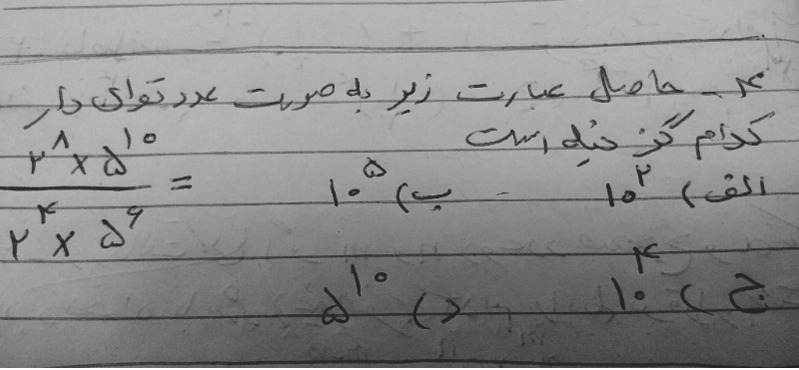 ۴- حاصل عبارت زیر به صورت عدد توان دار
کدام گزینه است
۲^۸ × ۵^۱۰ / ۲^۴ × ۵^۶ =
الف) ۱۰^۲ - ب) ۱۰^۵
ج) ۱۰^۴ د) ۵^۱۰